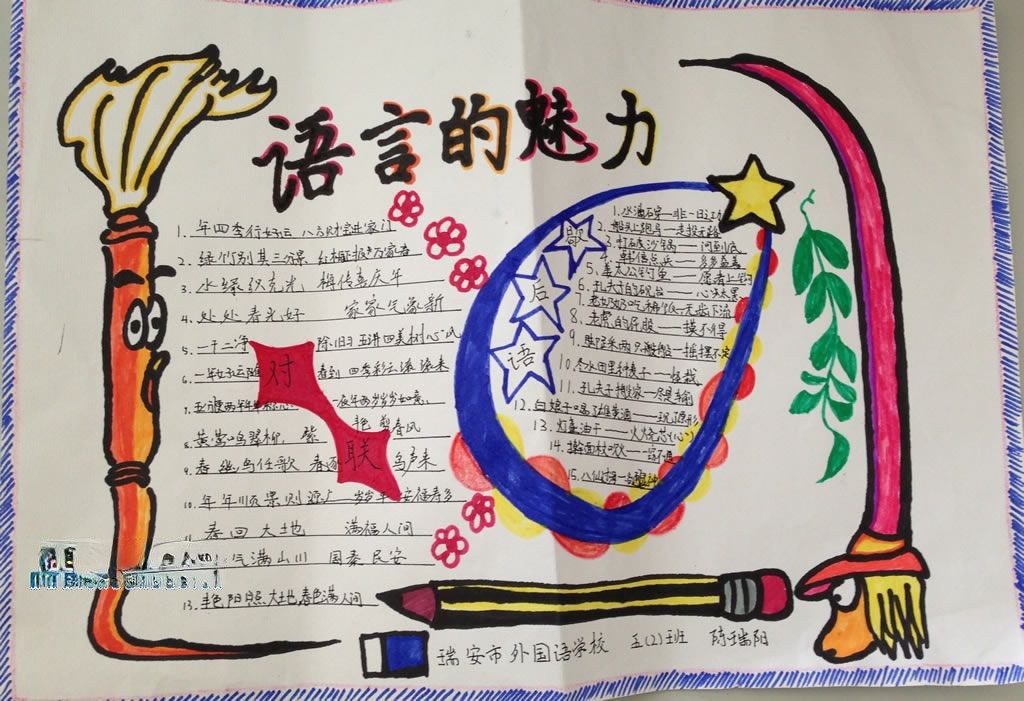 语言的魅力
对联
1. 年四季行好运 八方财宝进家门
2. 绿竹别其三分景 红梅正报万家春
3. 水绿 梅传喜庆年
4. 处处春光好 家家气象新
5. 一干二净除旧习 五讲四美树心风
6. 一年好运随 到 四季彩云滚滚来
7. 年年 一夜两岁岁岁如意
8. 黄莺鸣翠柳，紫 艳剪春风
9. 春继鸟任歌 春 鸟声来
10. 年年顺景则源广 岁岁平安福寿多
11. 春回大地 满福人间
气满山川 国泰民安
13. 艳阳照大地，春色满人间
歇后语
1. 水滴石穿——非一日之功
2. 船头上跑马——走投无路
3. 打破沙锅——问到底
4. 韩信点兵——多多益善
5. 姜太公钓鱼——愿者上钩
6. 孔夫子的砚台——心太黑
7. 老奶奶吃 ——无 下流
8. 老虎的屁股——摸不得
9. 只般船——摇摆不定
10. 冬水田里种麦子——怪栽
11. 孔夫子搬家——尽是书
12. 白娘子喝雄黄酒——现了原形
13. 灯盏油干——火烧芯（心）
14. 擀面杖吹火——一窍不通
15. 八仙过海
瑞安市外国语学校 五(2)班 陈瑞阳